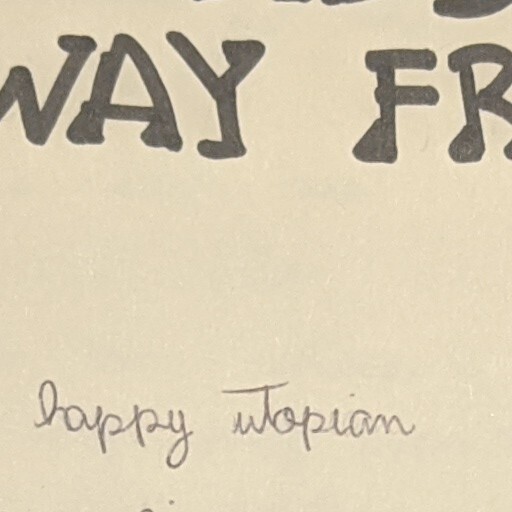 WAY FR
happy utopian